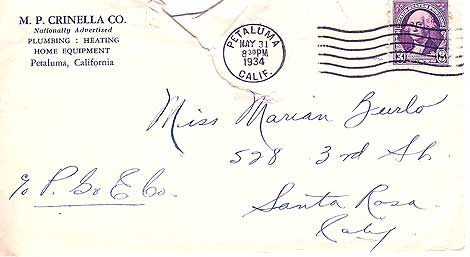 M. P. CRINELLA CO.
Nationally Advertised
PLUMBING : HEATING
HOME EQUIPMENT
Petaluma, California
PETALUMA
MAY 31
8 30 PM
1934
CALIF.
3 3
Miss Marian Burlo
528 3rd St.
c/o P. G. & E. Co.
Santa Rosa
Calif.